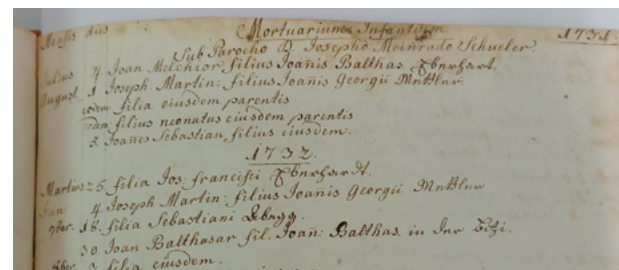 Mensis dies Mortuarium Infantum 1731.
Sub Parocho D. Josepho Meinrado Schueler.
Julius 4. Joan Melchior filius Joanis Balthas. Eberhart.
August. 1 Joseph. Martin: filius Joanis Georgii
eodem filia eiusdem parentis
eodem filius neonatus eiusdem parentis
3. Joanes Sebastian, filius eiusdem.
1732.
Martius 25. filia Jos. francisci Eberhardt.
Jun: 4. Joseph Martin: filius Joanis Georgii
7ber. 18. filia Sebastiani
30. Joan Balthasar fil. Joan: Balthas. in der
8ber. 3. filia eiusdem.